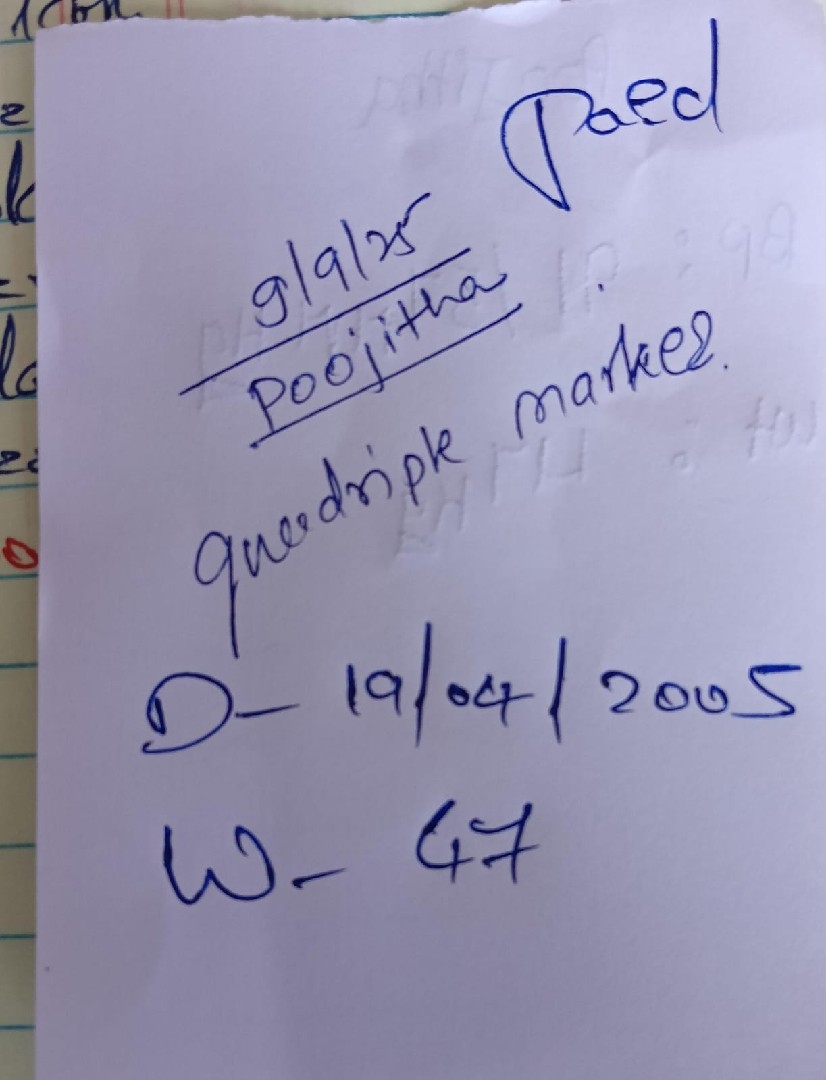 Paed
9/9/25
Poojitha
quadriple marker.
D- 19/04/2005
W- 47